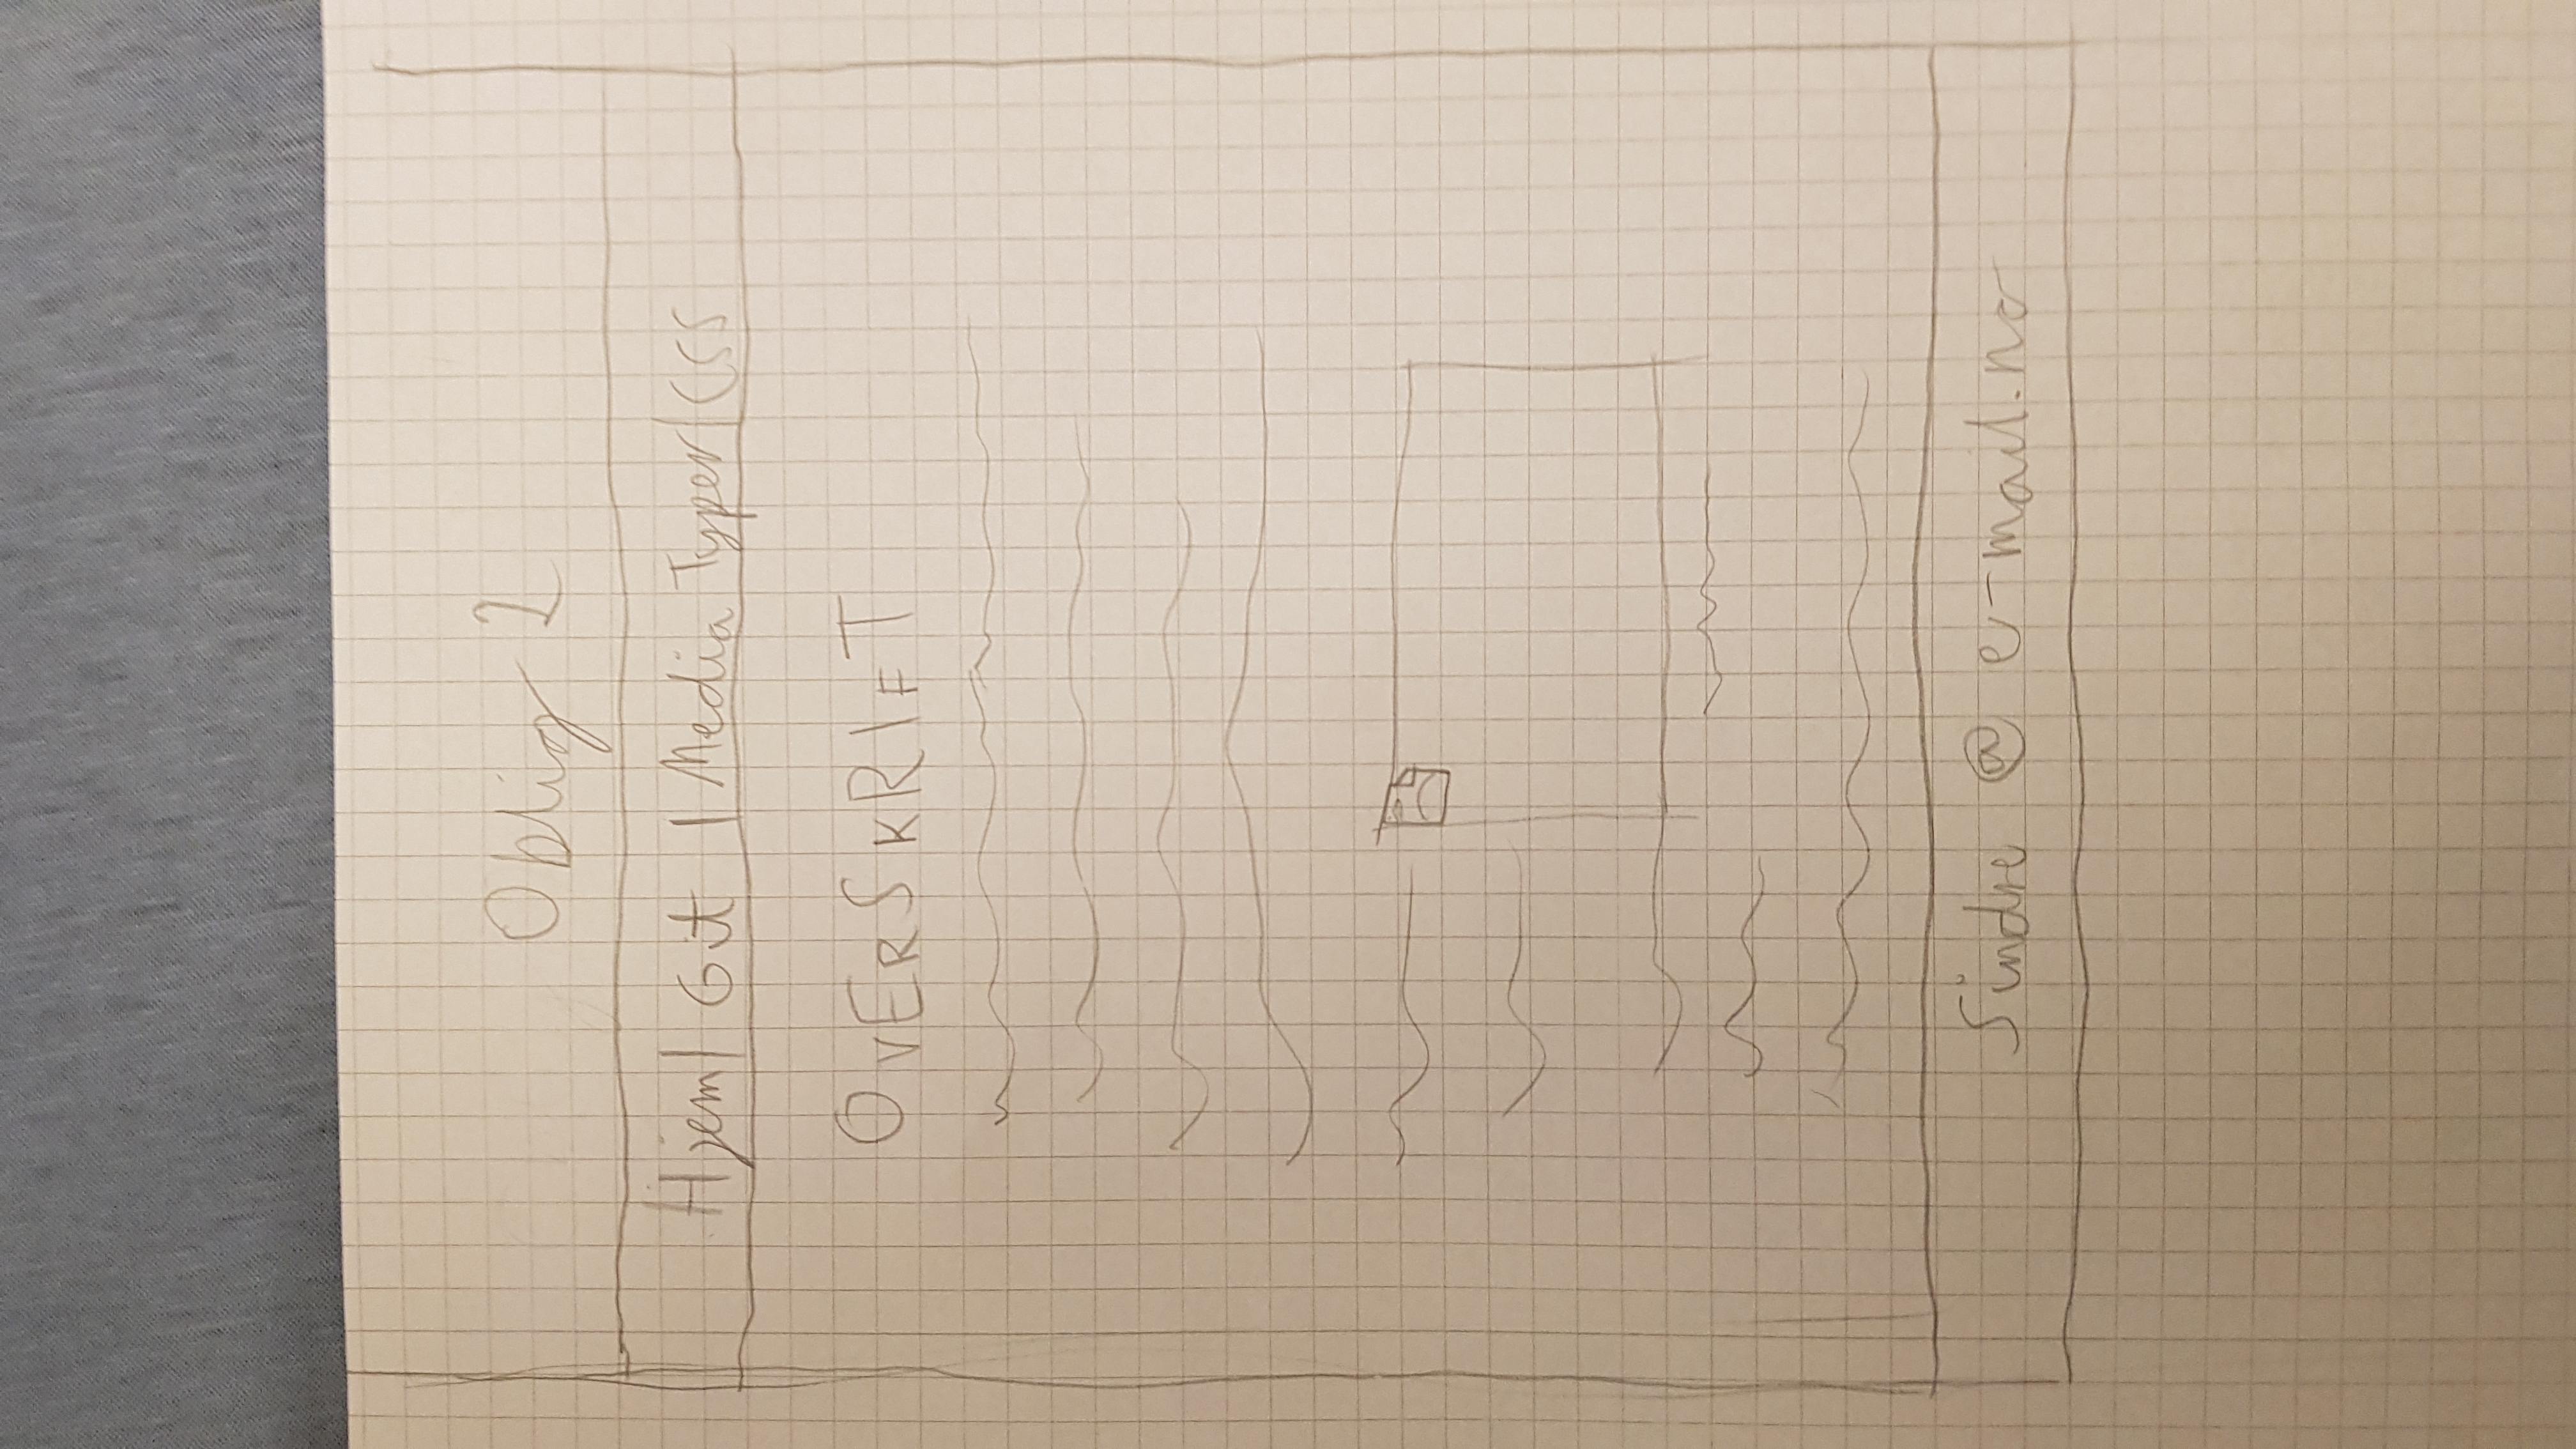 Oblig 2
Hjem | Git | Media Typer | CSS
OVERSKRIFT
Sindre @ e-mail.no